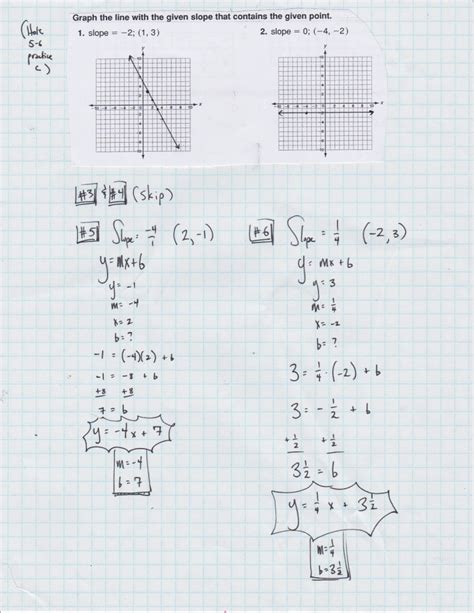 (Holt
5-6
practice
C)
Graph the line with the given slope that contains the given point.
1. slope = −2; (1, 3)
2. slope = 0; (−4, −2)
#3 & #4 (skip)
#5 Slope = -4/1 (2, -1)
y = mx + b
y = -1
m = -4
x = 2
b = ?
-1 = (-4)(2) + b
-1 = -8 + b
+8 +8
7 = b
y = -4x + 7
m = -4
b = 7
#6 Slope = 1/4 (-2, 3)
y = mx + b
y = 3
m = 1/4
x = -2
b = ?
3 = 1/4 · (-2) + b
3 = -1/2 + b
+1/2 +1/2
3 1/2 = b
y = 1/4 x + 3 1/2
m = 1/4
b = 3 1/2